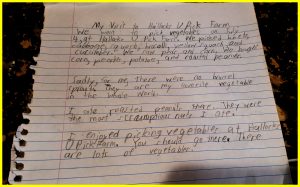 My Visit to Hallocks U Pick Farm
We went to pick vegetables on July
at Hallocks U Pick Farm. We picked beets,
cabbage, squash, broccoli, yellow squash, and
cucumbers. We saw pear and corn. We bought
corn, peaches, potatoes, and roasted peanuts.
Sadly, for me there were no brussel
sprouts. They are my favorite vegetable
in the whole world.
I ate roasted peanuts there. They were
the most scrumptious nuts I ate.
I enjoyed picking vegetables at Hallocks
U Pick Farm. You should go here. There
are lots of vegetables!